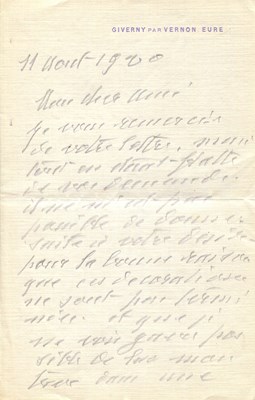 GIVERNY PAR VERNON EURE
11 Aout 1920
Mon cher ami
je vous remercie
de votre lettre, mais
tout en étant flatté
de vos demandes
il ne m'est pas
possible de donner
suite à votre désir
pour la bonne raison
que ces décorations
ne sont pas termi
nées. et que je
ne vois guère pos
sible de les mon
trer dans une